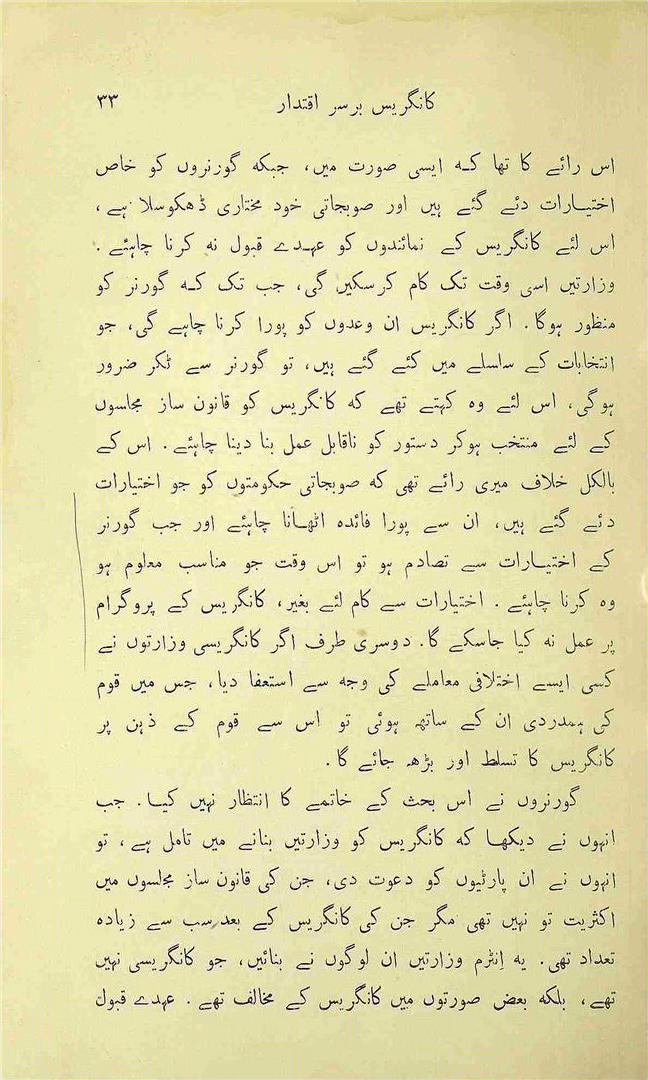 کانگریس برسر اقتدار ۳۳
اس رائے کا تھا کہ ایسی صورت میں، جبکہ گورنروں کو خاص
اختیارات دئے گئے ہیں اور صوبجاتی خود مختاری ڈھکوسلا ہے،
اس لئے کانگریس کے نمائندوں کو عہدے قبول نہ کرنا چاہئے۔
وزارتیں اسی وقت تک کام کرسکیں گی، جب تک کہ گورنر کو
منظور ہوگا۔ اگر کانگریس ان وعدوں کو پورا کرنا چاہے گی، جو
انتخابات کے سلسلے میں کئے گئے ہیں، تو گورنر سے ٹکر ضرور
ہوگی، اس لئے وہ کہتے تھے کہ کانگریس کو قانون ساز مجلسوں
کے لئے منتخب ہوکر دستور کو ناقابل عمل بنا دینا چاہئے۔ اس کے
بالکل خلاف میری رائے تھی کہ صوبجاتی حکومتوں کو جو اختیارات
دئے گئے ہیں، ان سے پورا فائدہ اٹھانا چاہئے اور جب گورنر
کے اختیارات سے تصادم ہو تو اس وقت جو مناسب معلوم ہو
وہ کرنا چاہئے۔ اختیارات سے کام لئے بغیر، کانگریس کے پروگرام
پر عمل نہ کیا جاسکے گا۔ دوسری طرف اگر کانگریسی وزارتوں نے
کسی ایسے اختلافی معاملے کی وجہ سے استعفا دیا، جس میں قوم
کی ہمدردی ان کے ساتھ ہوئی تو اس سے قوم کے ذہن پر
کانگریس کا تسلط اور بڑھ جائے گا۔
گورنروں نے اس بحث کے خاتمے کا انتظار نہیں کیا۔ جب
انہوں نے دیکھا کہ کانگریس کو وزارتیں بنانے میں تامل ہے، تو
انہوں نے ان پارٹیوں کو دعوت دی، جن کی قانون ساز مجلسوں میں
اکثریت تو نہیں تھی مگر جن کی کانگریس کے بعد سب سے زیادہ
تعداد تھی۔ یہ اِنٹرم وزارتیں ان لوگوں نے بنائیں، جو کانگریسی نہیں
تھے، بلکہ بعض صورتوں میں کانگریس کے مخالف تھے۔ عہدے قبول